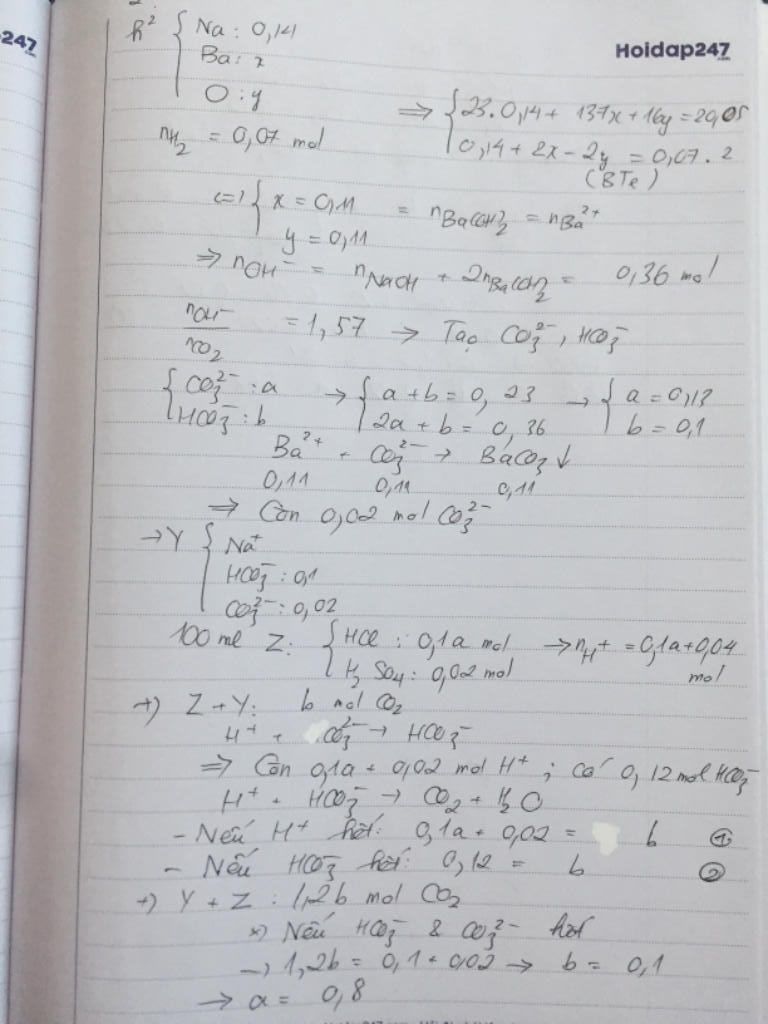 247
Hoidap247
h² { Na : 0,14
Ba : x
O : y
⇒ { 23.0,14 + 137x + 16y = 20,05
nH₂ = 0,07 mol
0,14 + 2x - 2y = 0,07.2
(BTe)
{ x = 0,11 = nBa(OH)₂ = nBa²⁺
y = 0,11
⇒ nOH⁻ = nNaOH + 2nBa(OH)₂ = 0,36 mol
nOH⁻/nCO₂ = 1,57 → Tạo CO₃²⁻, HCO₃⁻
{ CO₃²⁻ : a → { a + b = 0,23 → { a = 0,13
HCO₃⁻ : b 2a + b = 0,36 b = 0,1
Ba²⁺ + CO₃²⁻ → BaCO₃↓
0,11 0,11 0,11
⇒ Còn 0,02 mol CO₃²⁻
→ Y { Na⁺
HCO₃⁻ : 0,1
CO₃²⁻ : 0,02
100 ml Z: { HCl : 0,1a mol → nH⁺ = 0,1a + 0,04
H₂SO₄ : 0,02 mol mol
+) Z + Y: b mol CO₂
H⁺ + CO₃²⁻ → HCO₃⁻
⇒ Còn 0,1a + 0,02 mol H⁺ ; có 0,12 mol HCO₃⁻
H⁺ + HCO₃⁻ → CO₂ + H₂O
- Nếu H⁺ hết: 0,1a + 0,02 = b ①
- Nếu HCO₃⁻ hết: 0,12 = b ②
+) Y + Z : 1,2b mol CO₂
*) Nếu HCO₃⁻ & CO₃²⁻ hết
→ 1,2b = 0,1 + 0,02 → b = 0,1
→ a = 0,8